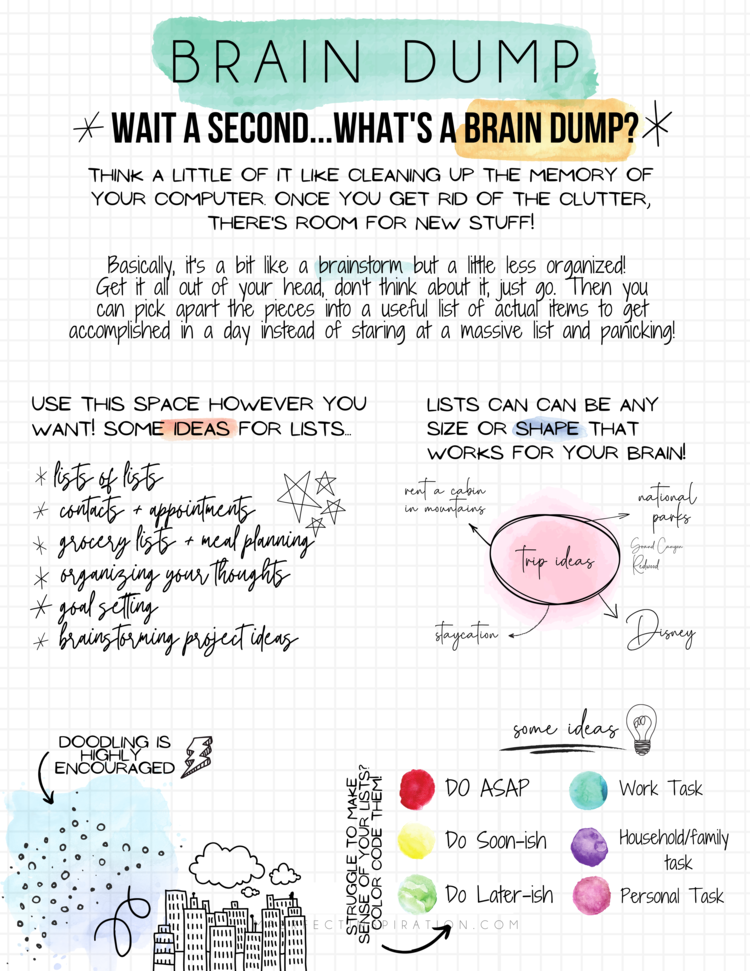 BRAIN DUMP
WAIT A SECOND...WHAT'S A BRAIN DUMP?
THINK A LITTLE OF IT LIKE CLEANING UP THE MEMORY OF
YOUR COMPUTER. ONCE YOU GET RID OF THE CLUTTER,
THERE'S ROOM FOR NEW STUFF!
Basically, it's a bit like a brainstorm but a little less organized!
Get it all out of your head, don't think about it, just go. Then you
can pick apart the pieces into a useful list of actual items to get
accomplished in a day instead of staring at a massive list and panicking!
USE THIS SPACE HOWEVER YOU
WANT! SOME IDEAS FOR LISTS...
lists of lists
contacts + appointments
grocery lists + meal planning
organizing your thoughts
goal setting
brainstorming project ideas
LISTS CAN CAN BE ANY
SIZE OR SHAPE THAT
WORKS FOR YOUR BRAIN!
rent a cabin
in mountains
national
parks
Grand Canyon
Redwood
trip ideas
staycation
Disney
DOODLING IS
HIGHLY
ENCOURAGED
some ideas
STRUGGLE TO MAKE
SENSE OF YOUR LISTS?
COLOR CODE THEM!
DO ASAP
Do Soon-ish
Do Later-ish
Work Task
Household/family
task
Personal Task